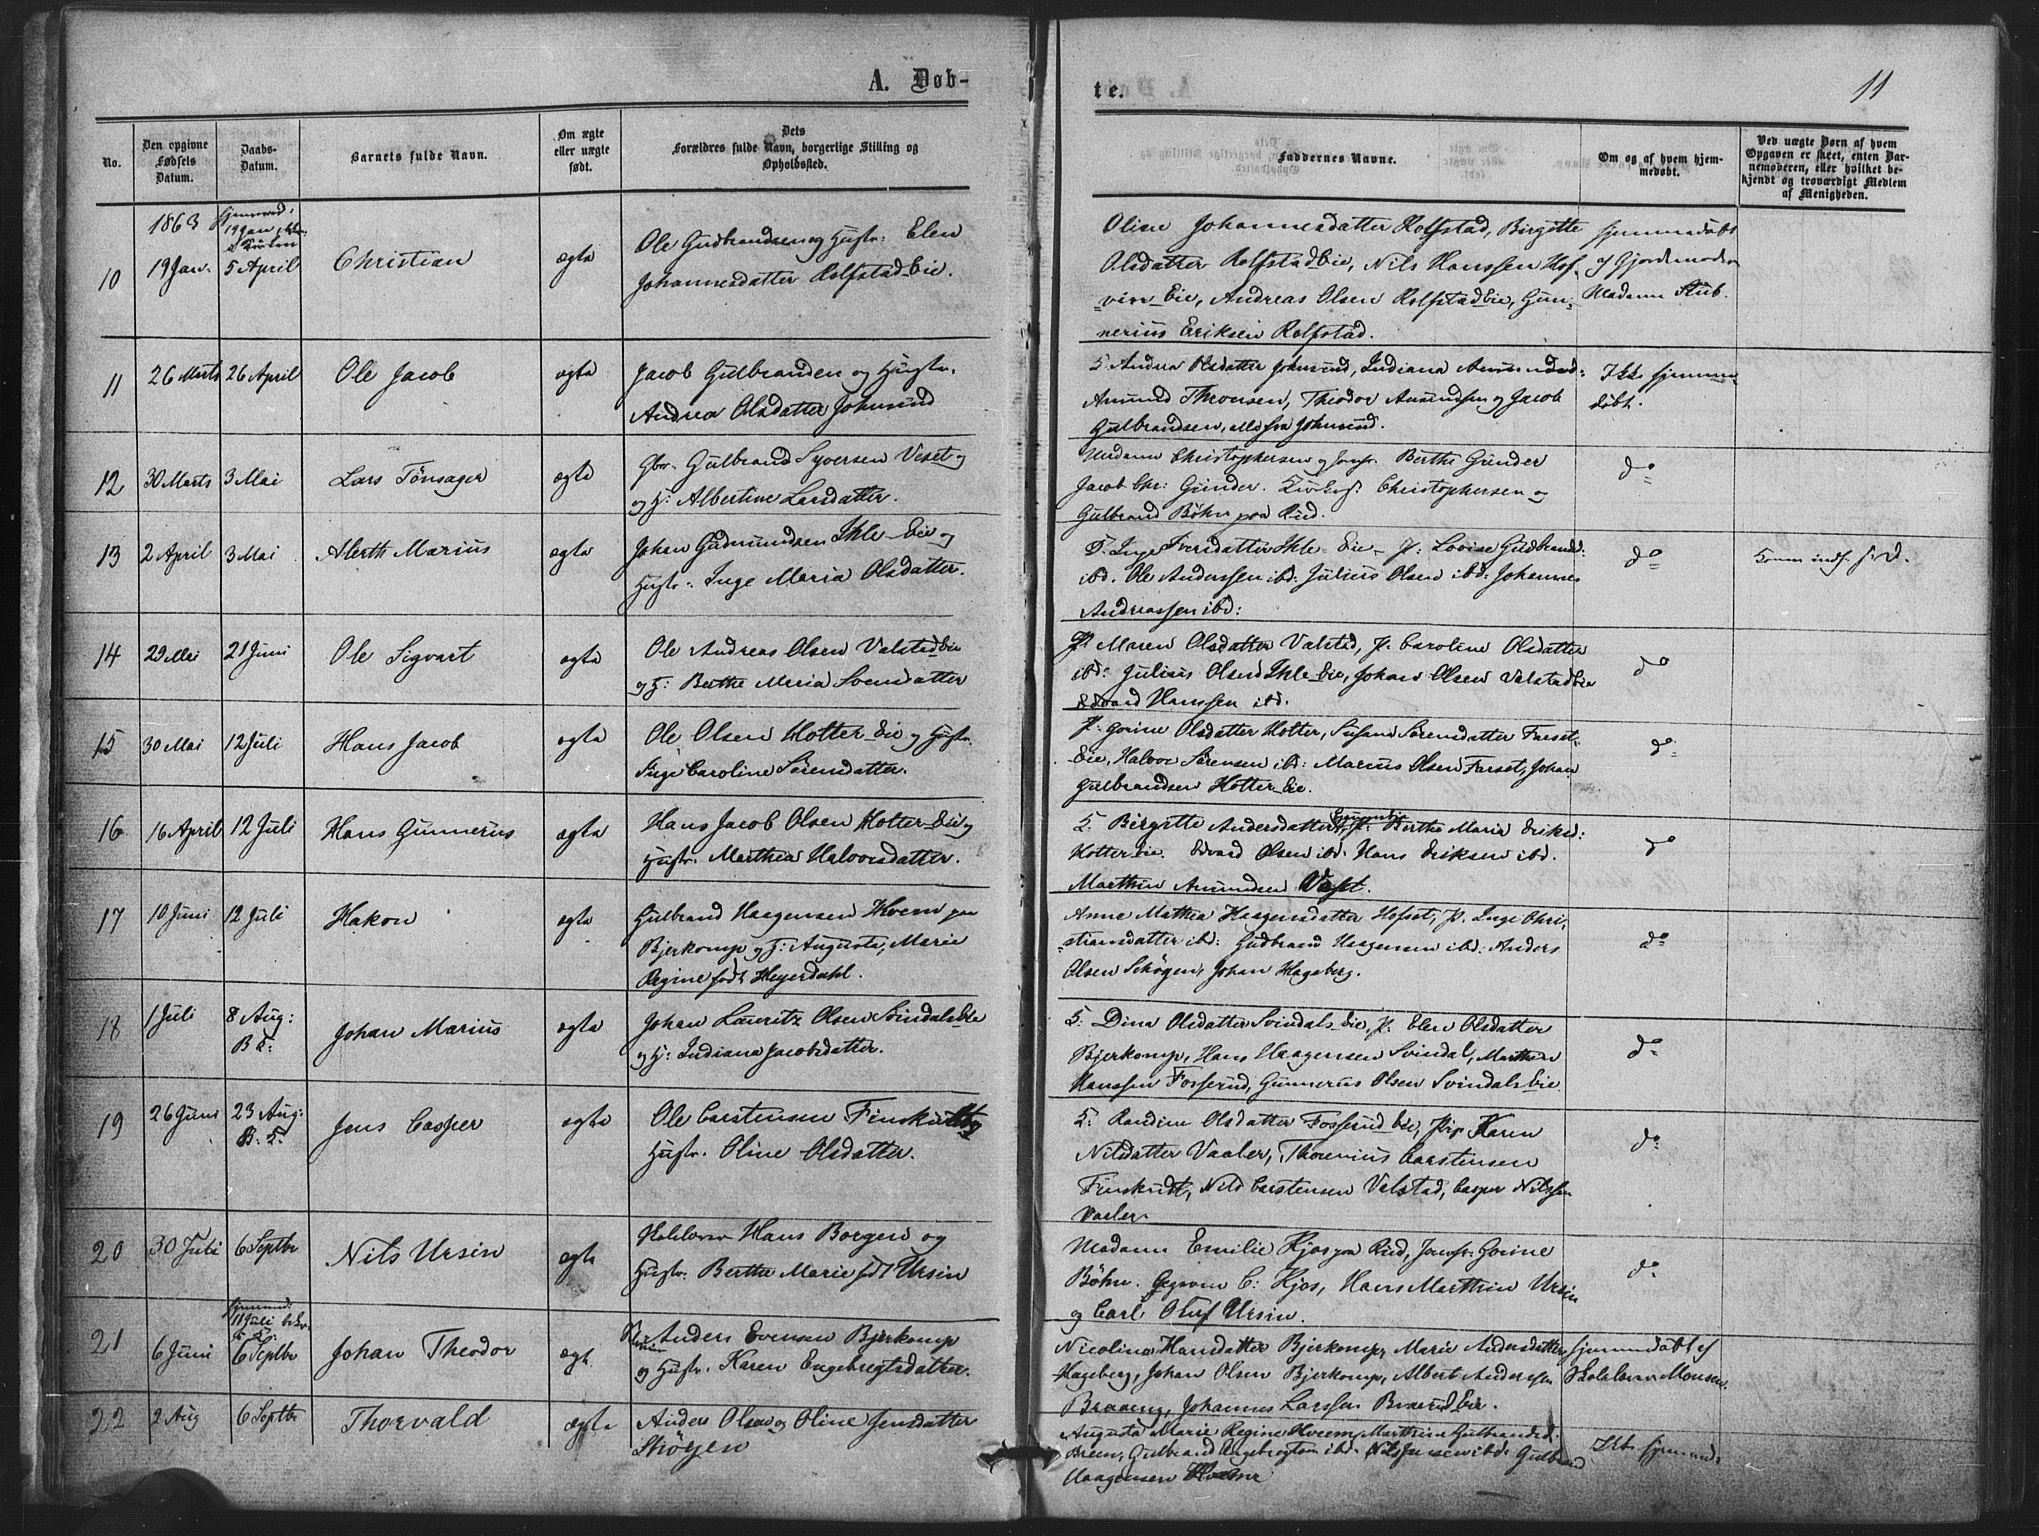 A. Døb-
No.
Den opgivne Fødsels Datum.
Daabs-Datum.
Barnets fulde Navn.
Om ægte eller uægte født.
Dets Forældres fulde Navn, borgerlige Stilling og Opholdssted.
te.
11
Faddernes Navne.
Om og af hvem hjemmedøbt.
Ved uægte Børn af hvem Opgaven er skeet, enten Barnemoderen, eller hvilket bekjendt og troværdigt Medlem af Menigheden.
1863
10
19 Jan.
5 April
Christian
ægte
Ole Gudbrandsen og Hustr: Elen
Johannesdatter Rolfstad Eie.
Oline Johannesdatter Rolfstad, Birgitte
Olsdatter Rolfstad Eie, Nils Hanssen Hof-
vin Eie, Andreas Olsen Rolfstad Eie, Gun-
nerius Eriksen Rolfstad.
hjemmedøbt
af Gjordemoder
Madame Stub.
11
26 Marts
26 April
Ole Jacob
ægte
Jacob Gulbrandsen og Hustr.
Andrea Olsdatter Johnsrud
Andrea Olsdatter Johnsrud, Indiana Amundsd:
Amund Thronsen, Theodor Amundsen og Jacob
Gulbrandsen, alle fra Johnsrud.
Ikke hjemme
døbt.
12
30 Marts
3 Mai
Lars Tönsager
ægte
Gbr. Gulbrand Syversen Veset og
og H: Albertine Larsdatter.
Madame Christophersen og Jomfr. Berthe Günder
Jacob Chr: Günder. Christophersen og
Gulbrand Böhn paa Rud.
do
13
2 April
3 Mai
Alerth Marius
ægte
Johan Gudmundsen Ihle Eie og
Hustr: Inge Maria Olsdatter.
F. Inge Iversdatter Ihle Eie P: Lovise Gudbrandsd:
ibd. Ole Anderssen ibd: Julius Olsen ibd: Johannes
Andreassen ibd:
do
14
29 Mai
21 Juni
Ole Sigvart
ægte
Ole Andreas Olsen Valstad Eie
og H: Berthe Maria Svensdatter
P. Maren Olsdatter Valstad, P. Caroline Olsdatter
ibd: Julius Olsen Ihle Eie, Johan Olsen Valstad Eie
Edvard Hanssen ibd.
do
15
30 Mai
12 Juli
Hans Jacob
ægte
Ole Olsen Hotter Eie og Hustr.
Inge Caroline Sörensdatter.
P. Gorine Olsdatter Hotter, Susane Sörensdatter Farset-
Eie, Halvor Sörensen ibd: Marius Olsen Farset, Johan
Gulbrandsen Hotter Eie.
do
16
16 April
12 Juli
Hans Gunnerius
ægte
Hans Jacob Olsen Hotter Eie og
Hustr. Marthea Halvorsdatter.
K: Birgitte Andersdatter P: Berthe Maria Eriksd:
Hotter Eie. Edvard Olsen ibd. Hans Eriksen ibd.
Marthin Amundsen Veset.
do
17
10 Juni
12 Juli
Hakon
ægte
Gulbrand Haagensen Hveem paa
Bjerkomp og H: Augusta Marie
Regine født Heyerdahl.
Anne Mathea Haagensdatter Hofset, P. Inge Chri-
stiansdatter ibd: Gudbrand Haagensen ibd: Anders
Olsen Skögen, Johan Hageberg.
do
18
1 Juli
8 Aug:
Johan Marius
ægte
Johan Lauritz Olsen Svindals Eie
og H: Indiana Jacobsdatter.
K: Dina Olsdatter Svindals Eie, P. Elen Olsdatter
Bjerkomp, Hans Haagensen Svindal, Marthin
Hanssen Fosserud, Gunnerus Olsen Svindals Eie
do
19
26 Juni
23 Aug:
Jens Casper
ægte
Ole Carstensen Finskudt og
Hustr. Oline Olsdatter.
K: Randine Olsdatter Fosserud Eie, Karen
Nilsdatter Vaaler, Thorenius Carstensen
Finskudt, Nils Carstensen Valstad, Casper Nilssen
Vaaler
do
20
30 Juli
6 Septbr
Nils Ursin
ægte
Skolelærer Hans Borgen og
Hustr. Berthe Marie født Ursin
Madame Emilie Kjos paa Rud, Jomfr: Gorine
Böhn. C: Kjos, Hans Marthin Ursin
og Carl Oluf Ursin.
do
21
6 Juni
6 Septbr
Johan Theodor
ægte
Anders Evensen Bjerkomp
og Hustr. Karen Engebregtsdatter.
Nicoline Hansdatter Bjerkomp, Marie Andersdatter
Hageberg, Johan Olsen Bjerkomp, Albert Anderssen
Johannes Larssen Braarud Eie.
hjemmedøbt af
Skolelærer Monsen.
22
2 Aug
6 Septbr
Thorvald
ægte
Anders Olsen og Oline Jensdatter
Skögen
Augusta Marie Regine Hveem, Marthine Gulbrandsd:
Gulbrand Engebregtsen ibd: Nils Jensen ibd: Gulbrand
Haagensen Hveem
Ikke hjemmed.